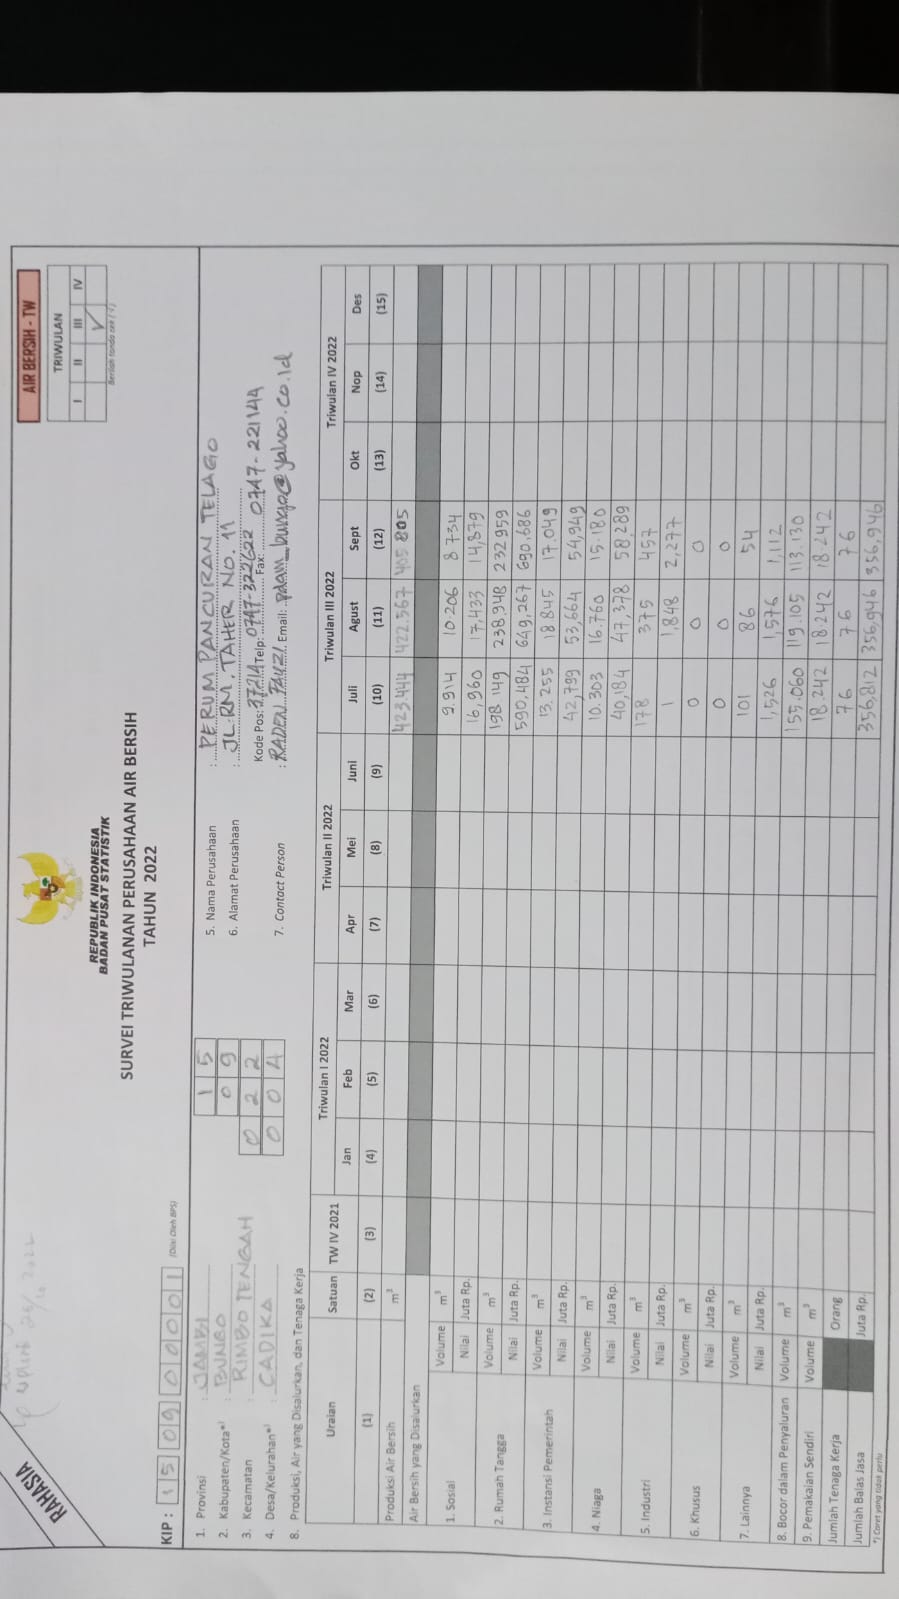 RAHASIA
AIR BERSIH - TW
TRIWULAN
I II III IV
✓
Berilah tanda cek (√)
REPUBLIK INDONESIA
BADAN PUSAT STATISTIK
SURVEI TRIWULANAN PERUSAHAAN AIR BERSIH
TAHUN 2022
KIP : 15 09 0 0 0 0 1 (Diisi Oleh BPS)
1. Provinsi : JAMBI 15
2. Kabupaten/Kota*) : BUNGO 09
3. Kecamatan : RIMBO TENGAH 022
4. Desa/Kelurahan*) : CADIKA 004
5. Nama Perusahaan : PERUM PANCURAN TELAGO
6. Alamat Perusahaan : JL. RM. TAHER NO. 11
Kode Pos: 37214 Telp: 0747-322622 Fax: 0747-221144
7. Contact Person : RADEN FAUZI Email: pdam_bungo@yahoo.co.id
8. Produksi, Air yang Disalurkan, dan Tenaga Kerja
Uraian Satuan TW IV 2021 Triwulan I 2022 Triwulan II 2022 Triwulan III 2022 Triwulan IV 2022
Jan Feb Mar Apr Mei Juni Juli Agust Sept Okt Nop Des
(1) (2) (3) (4) (5) (6) (7) (8) (9) (10) (11) (12) (13) (14) (15)
Produksi Air Bersih m³ 423.444 422.567 405 805
Air Bersih yang Disalurkan
1. Sosial Volume m³ 9.914 10.206 8 734
Nilai Juta Rp. 16,960 17,433 14,879
2. Rumah Tangga Volume m³ 198.149 238.948 232959
Nilai Juta Rp. 590,484 649,267 690,686
3. Instansi Pemerintah Volume m³ 13.255 18.845 17.049
Nilai Juta Rp. 42,799 53,664 54,949
4. Niaga Volume m³ 10.303 16.760 15.180
Nilai Juta Rp. 40,184 47,378 58.289
5. Industri Volume m³ 178 375 457
Nilai Juta Rp. 1 1,848 2,277
6. Khusus Volume m³ 0 0 0
Nilai Juta Rp. 0 0 0
7. Lainnya Volume m³ 101 86 54
Nilai Juta Rp. 1,526 1,576 1,112
8. Bocor dalam Penyaluran Volume m³ 155.060 119.105 113.130
9. Pemakaian Sendiri Volume m³ 18.242 18.242 18.242
Jumlah Tenaga Kerja Orang 76 76 76
Jumlah Balas Jasa Juta Rp. 356,812 356,946 356,946
*) Coret yang tidak perlu